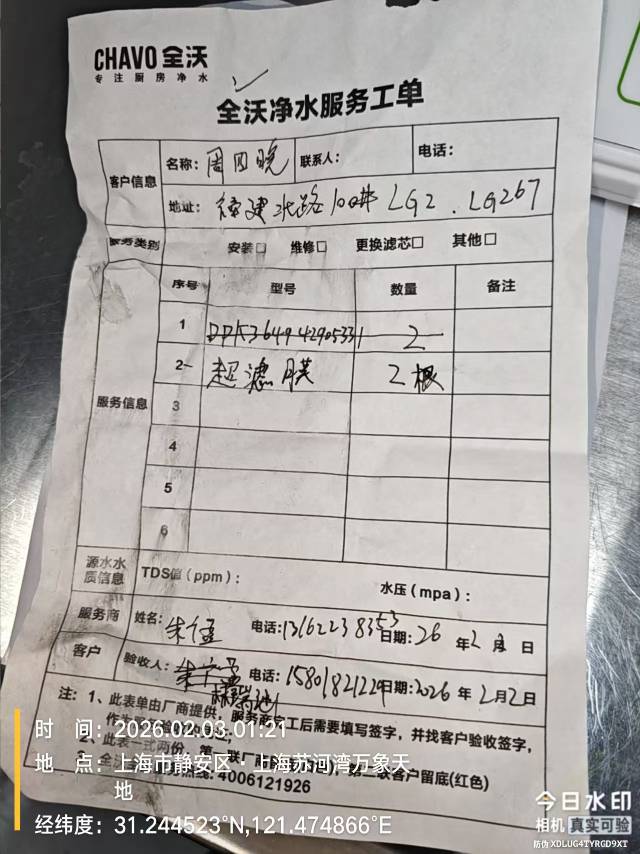 CHAVO 全沃
专注厨房净水
全沃净水服务工单
客户信息
名称: 周四晚 联系人: 电话:
地址: 福建北路100井 LG2. LG267
服务类别 安装□ 维修□ 更换滤芯□ 其他□
服务信息
序号 型号 数量 备注
1 2
2 超滤膜 2根
3
4
5
6
源水水质信息 TDS值(ppm): 水压(mpa):
服务商 姓名: 电话:13162238353 日期: 26年2月 日
客户 验收人: 电话:15801821229 日期:2026年2月2日
注: 1、此表单由厂商提供, 服务商完工后需要填写签字, 并找客户验收签字,
2、此表一式两份, 第一联厂 第二联客户留底(红色)
热线: 4006121926
时 间: 2026.02.03 01:21
地 点: 上海市静安区·上海苏河湾万象天地
经纬度: 31.244523°N,121.474866°E
今日水印
相机 真实可验
防伪 XDLUG4TYRGD9XT